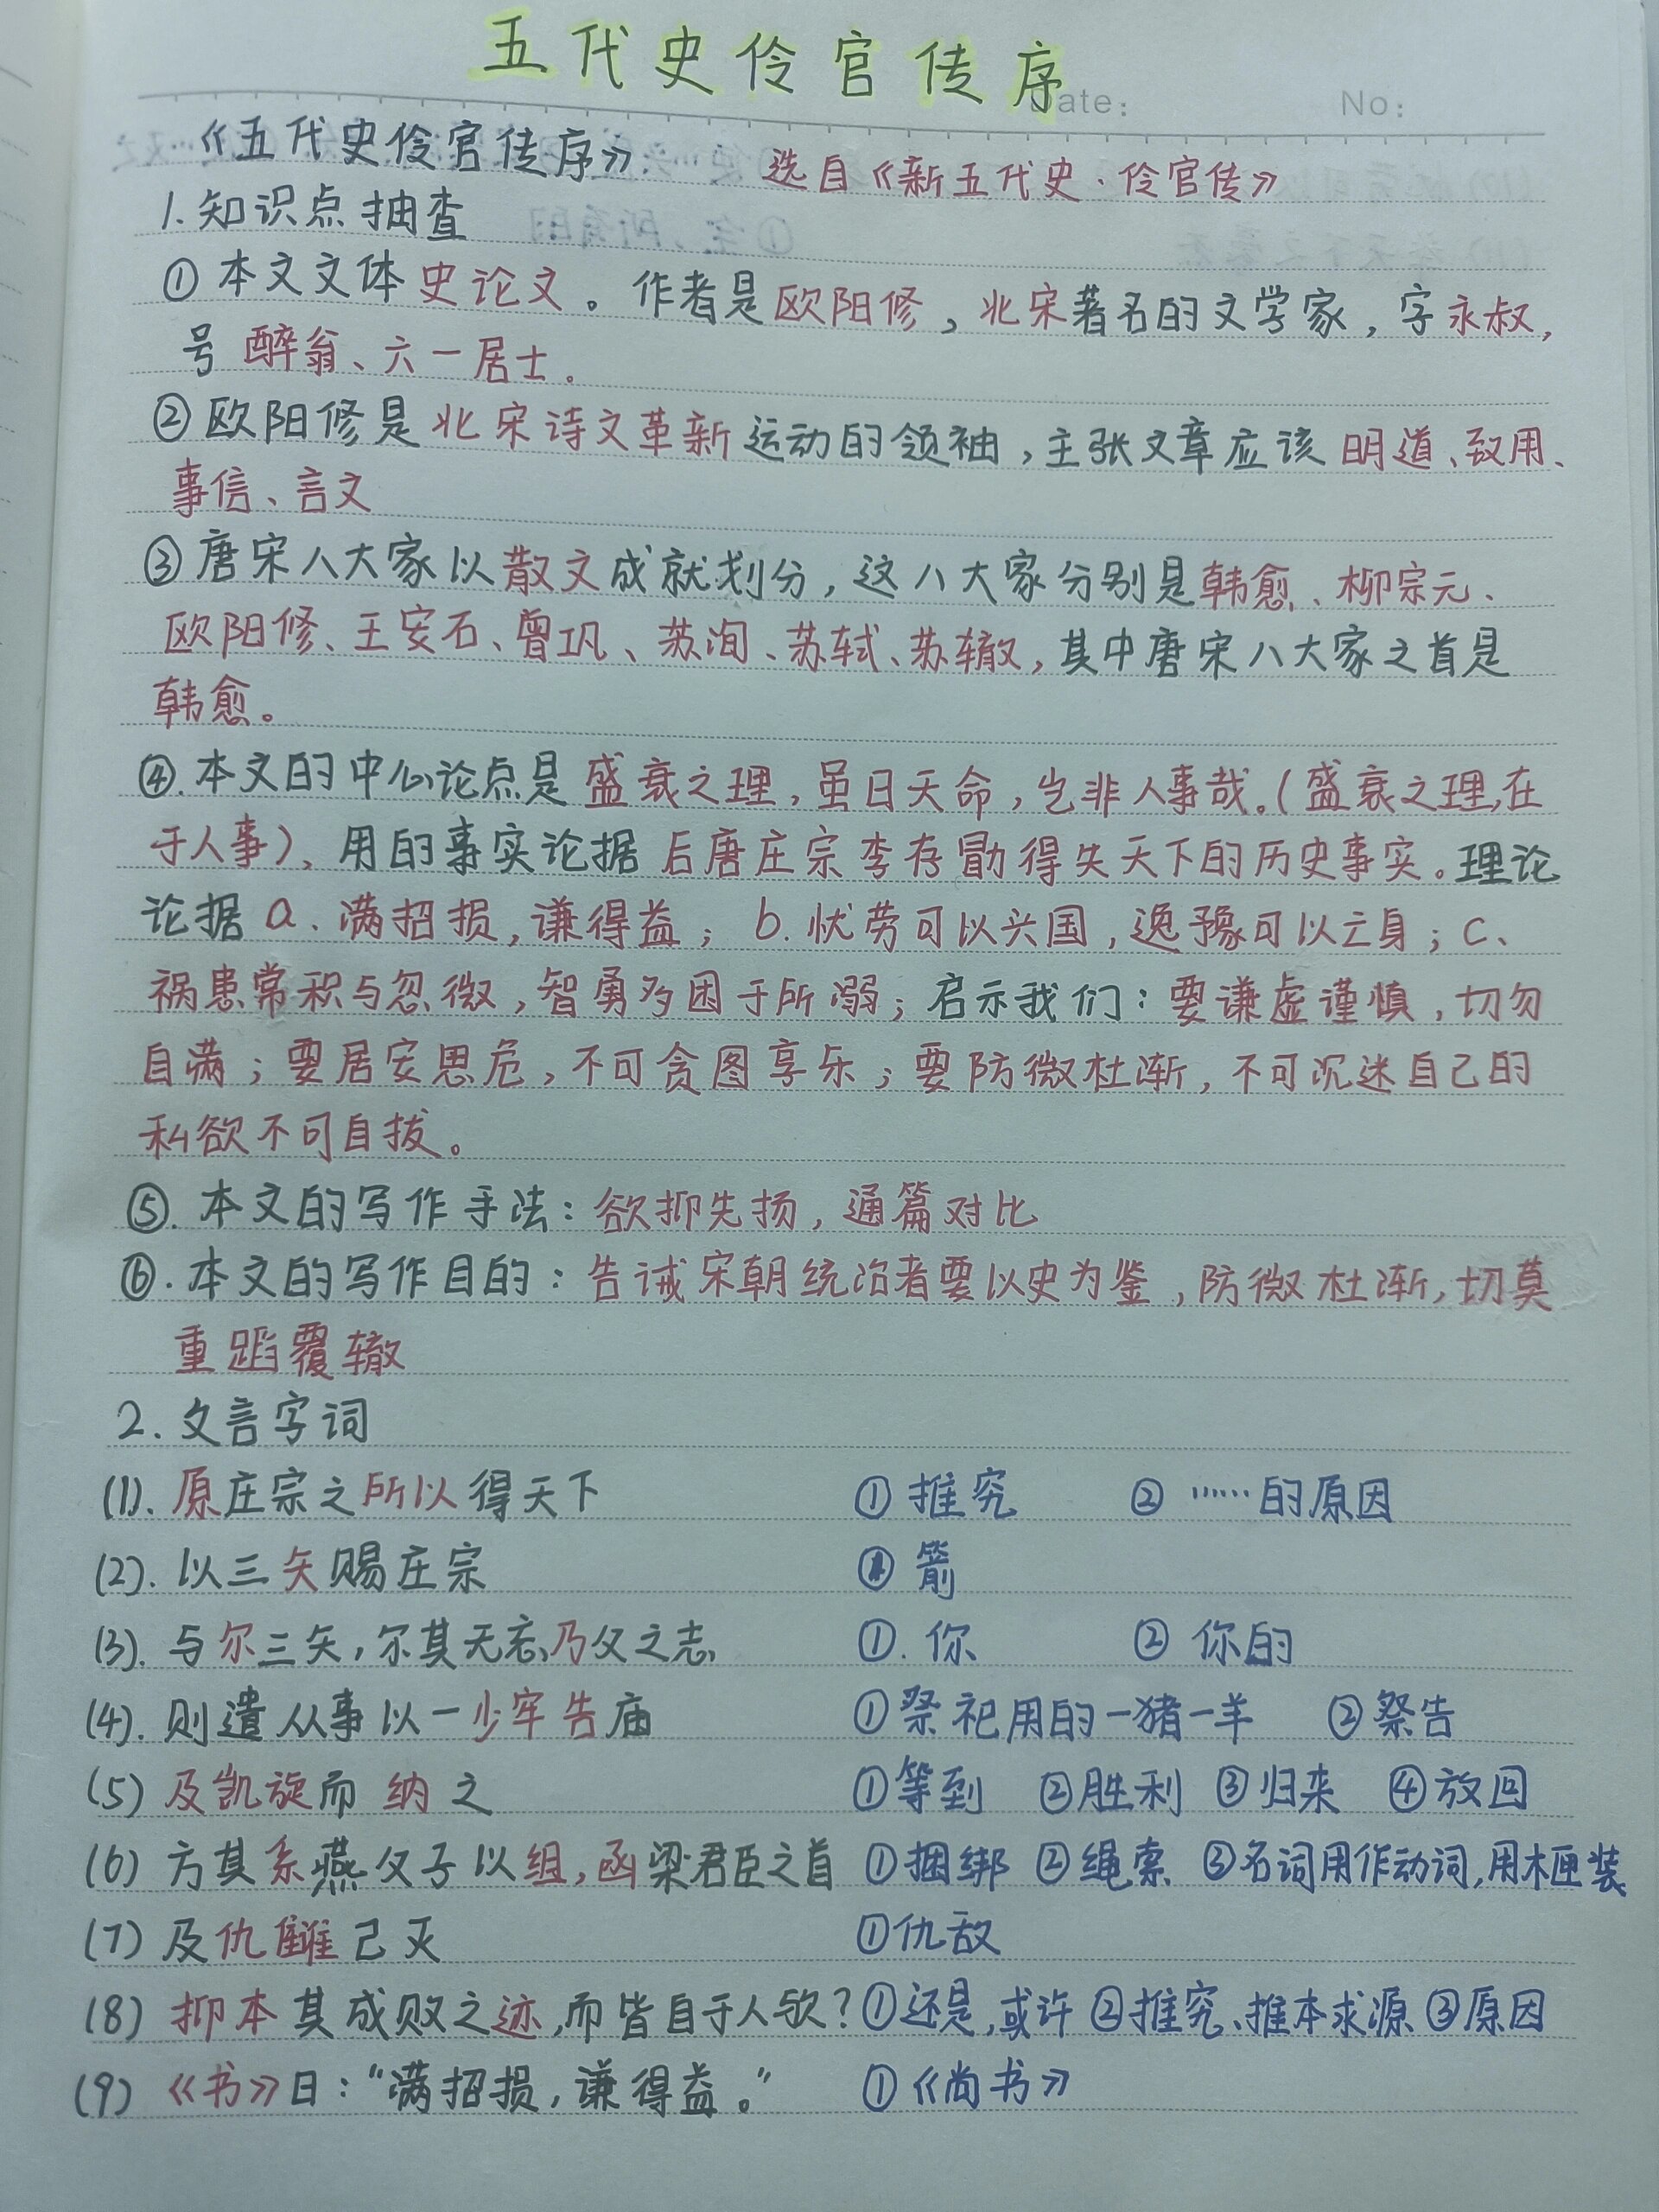 五代史伶官传序
Date: No:
《五代史伶官传序》 选自《新五代史·伶官传》
1.知识点抽查
①本文文体史论文。作者是欧阳修,北宋著名的文学家,字永叔,
号醉翁、六一居士。
②欧阳修是北宋诗文革新运动的领袖,主张文章应该明道、致用、
事信、言文
③唐宋八大家以散文成就划分,这八大家分别是韩愈、柳宗元、
欧阳修、王安石、曾巩、苏洵、苏轼、苏辙,其中唐宋八大家之首是
韩愈。
④.本文的中心论点是盛衰之理,虽曰天命,岂非人事哉。(盛衰之理,在
于人事)、用的事实论据后唐庄宗李存勖得失天下的历史事实。理论
论据a.满招损,谦得益;b.忧劳可以兴国,逸豫可以亡身;c、
祸患常积与忽微,智勇多困于所溺;启示我们:要谦虚谨慎,切勿
自满;要居安思危,不可贪图享乐;要防微杜渐,不可沉迷自己的
私欲不可自拔。
⑤.本文的写作手法:欲抑先扬,通篇对比
⑥.本文的写作目的:告诫宋朝统治者要以史为鉴,防微杜渐,切莫
重蹈覆辙
2.文言字词
(1).原庄宗之所以得天下 ①推究 ②……的原因
(2).以三矢赐庄宗 ①箭
(3).与尔三矢,尔其无忘乃父之志 ①.你 ②你的
(4).则遣从事以一少牢告庙 ①祭祀用的一猪一羊 ②祭告
(5)及凯旋而纳之 ①等到 ②胜利 ③归来 ④放回
(6)方其系燕父子以组,函梁君臣之首 ①捆绑 ②绳索 ③名词用作动词,用木匣装
(7)及仇雠已灭 ①仇敌
(8)抑本其成败之迹,而皆自于人欤?①还是,或许 ②推究、推本求源 ③原因
(9)《书》曰:“满招损,谦得益。” ①《尚书》